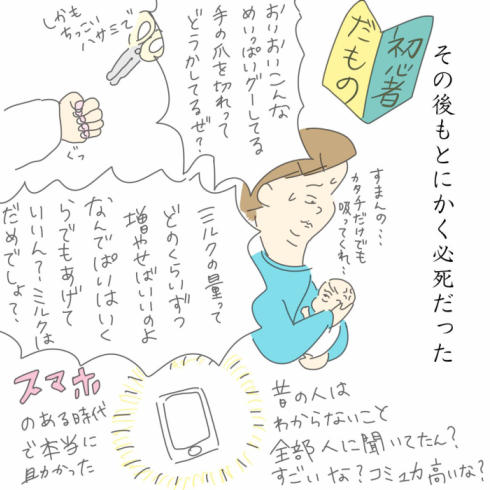 その後もとにかく必死だった
初心者
だもの
おいおいこんな
めいっぱいグーしてる
手の爪を切れって
どうかしてるぜ？
しかも
ちっこい
ハサミで
ぐっ
すまんの・・・
カタチだけでも
吸ってくれ・・
ミルクの量って
どのくらいずつ
増やせばいいのよ
なんでぱいはいく
らでもあげて
いいん？ミルクは
だめでしょ？
昔の人は
わからないこと
全部人に聞いてたん？
すごいな？コミュ力高いな？
スマホ
のある時代
で本当に
助かった